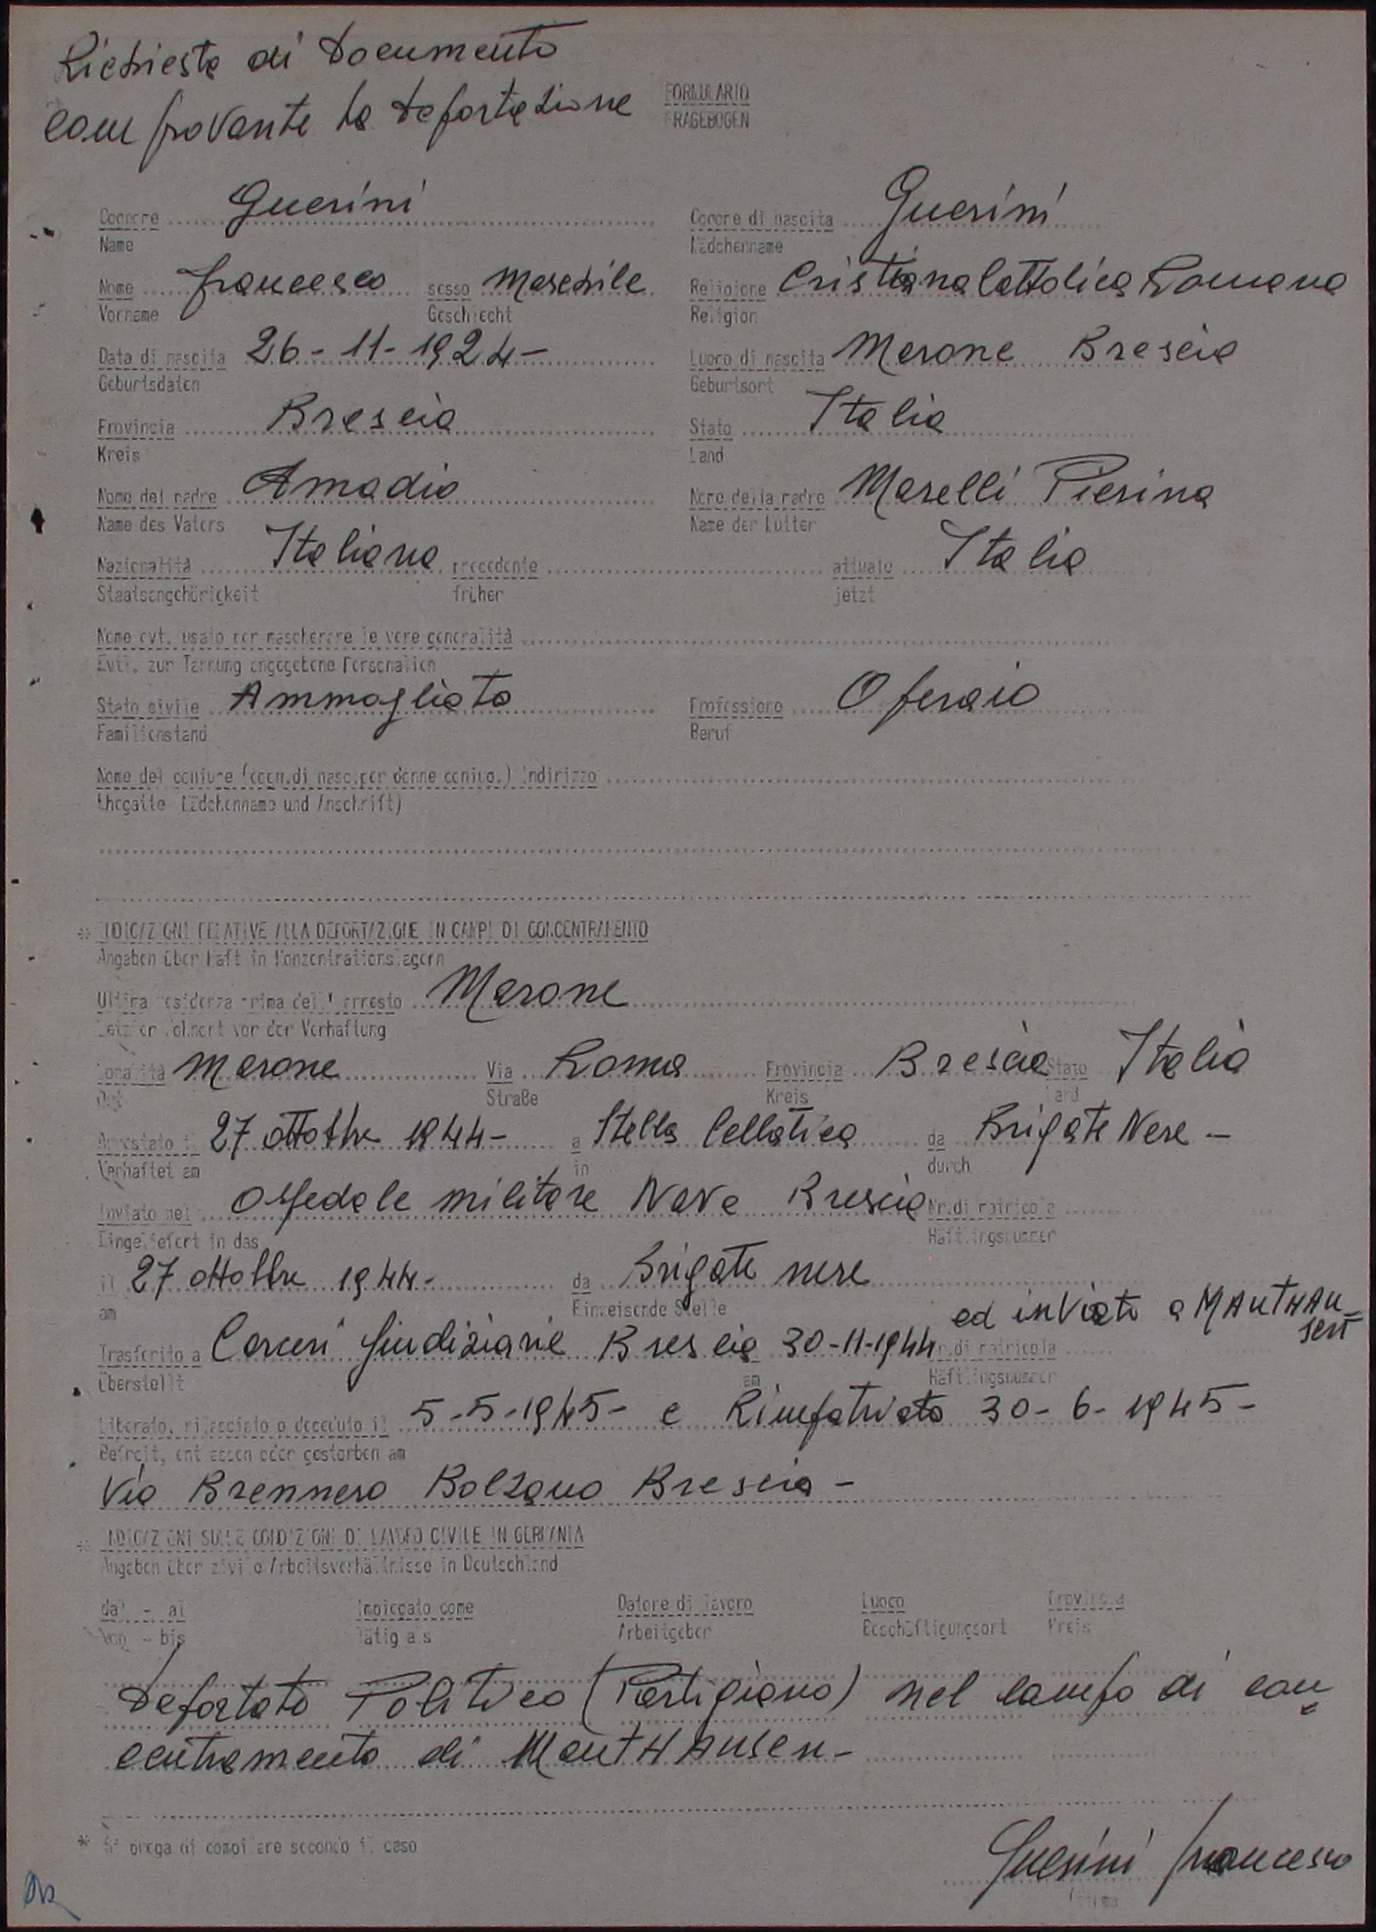 Richiesta di Documento
comprovante la Deportazione
FORMULARIO
FRAGEBOGEN
Cognome Guerini Cognome di nascita Guerini
Name Mädchenname
Nome Francesco sesso Maschile Religione Cristiana Cattolica Romana
Vorname Geschlecht Religion
Data di nascita 26-11-1924- Luogo di nascita Marone Brescia
Geburtsdaten Geburtsort
Provincia Brescia Stato Italia
Kreis Land
Nome del padre Amadio Nome della madre Maselli Pierina
Name des Vaters Name der Mutter
Nazionalità Italiana precedente attuale Italia
Staatsangehörigkeit früher jetzt
Nome evt. usato per mascherare le vere generalità
Evtl. zur Tarnung angegebene Personalien
Stato civile Ammogliato Professione Operaio
Familienstand Beruf
Nome del coniuge (cogn.di nasc.per donne coniug.) Indirizzo
Ehegatte Mädchenname und Anschrift)
* INDICAZIONI RELATIVE ALLA DEPORTAZIONE IN CAMPI DI CONCENTRAMENTO
Angaben über Haft in Konzentrationslagern
Ultima residenza prima dell'arresto Marone
Letzter Wohnort vor der Verhaftung
Località Marone Via Roma Provincia Brescia Stato Italia
Ort Straße Kreis Land
Arrestato il 27 ottobre 1944- a Stella Cellatica da Brigate Nere -
Verhaftet am in durch
Inviato nel Ospedale militare Nave Brescia Nr.di matricola
Eingeliefert in das Häftlingsnummer
il 27 ottobre 1944- da Brigate nere
am Einweisende Stelle
ed inviato a MAUTHAU=
sen
Trasferito a Carceri Giudiziarie Brescia 30-11-1944 Nr.di matricola
überstellt am Häftlingsnummer
Liberato, rilasciato o deceduto il 5-5-1945- e Rimpatriato 30-6-1945-
Befreit, entlassen oder gestorben am
Via Brennero Bolzano Brescia -
* INDICAZIONI SULLE CONDIZIONI DI LAVORO CIVILE IN GERMANIA
Angaben über zivile Arbeitsverhältnisse in Deutschland
dal - al Impiegato come Datore di lavoro Luogo Provincia
Von - bis Tätig als Arbeitgeber Beschäftigungsort Kreis
Deportato Politico (Partigiano) nel campo di con
centramento di MautHausen-
* Si prega di compilare secondo il caso
Guerini Francesco
Firma